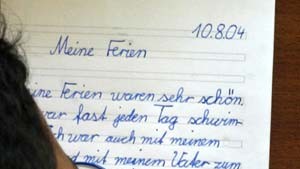 10.8.04
Meine Ferien
ine Ferien waren sehr schön.
war fast jeden Tag schwim-
ch war auch mit meinem
d mit meinem Vater zum